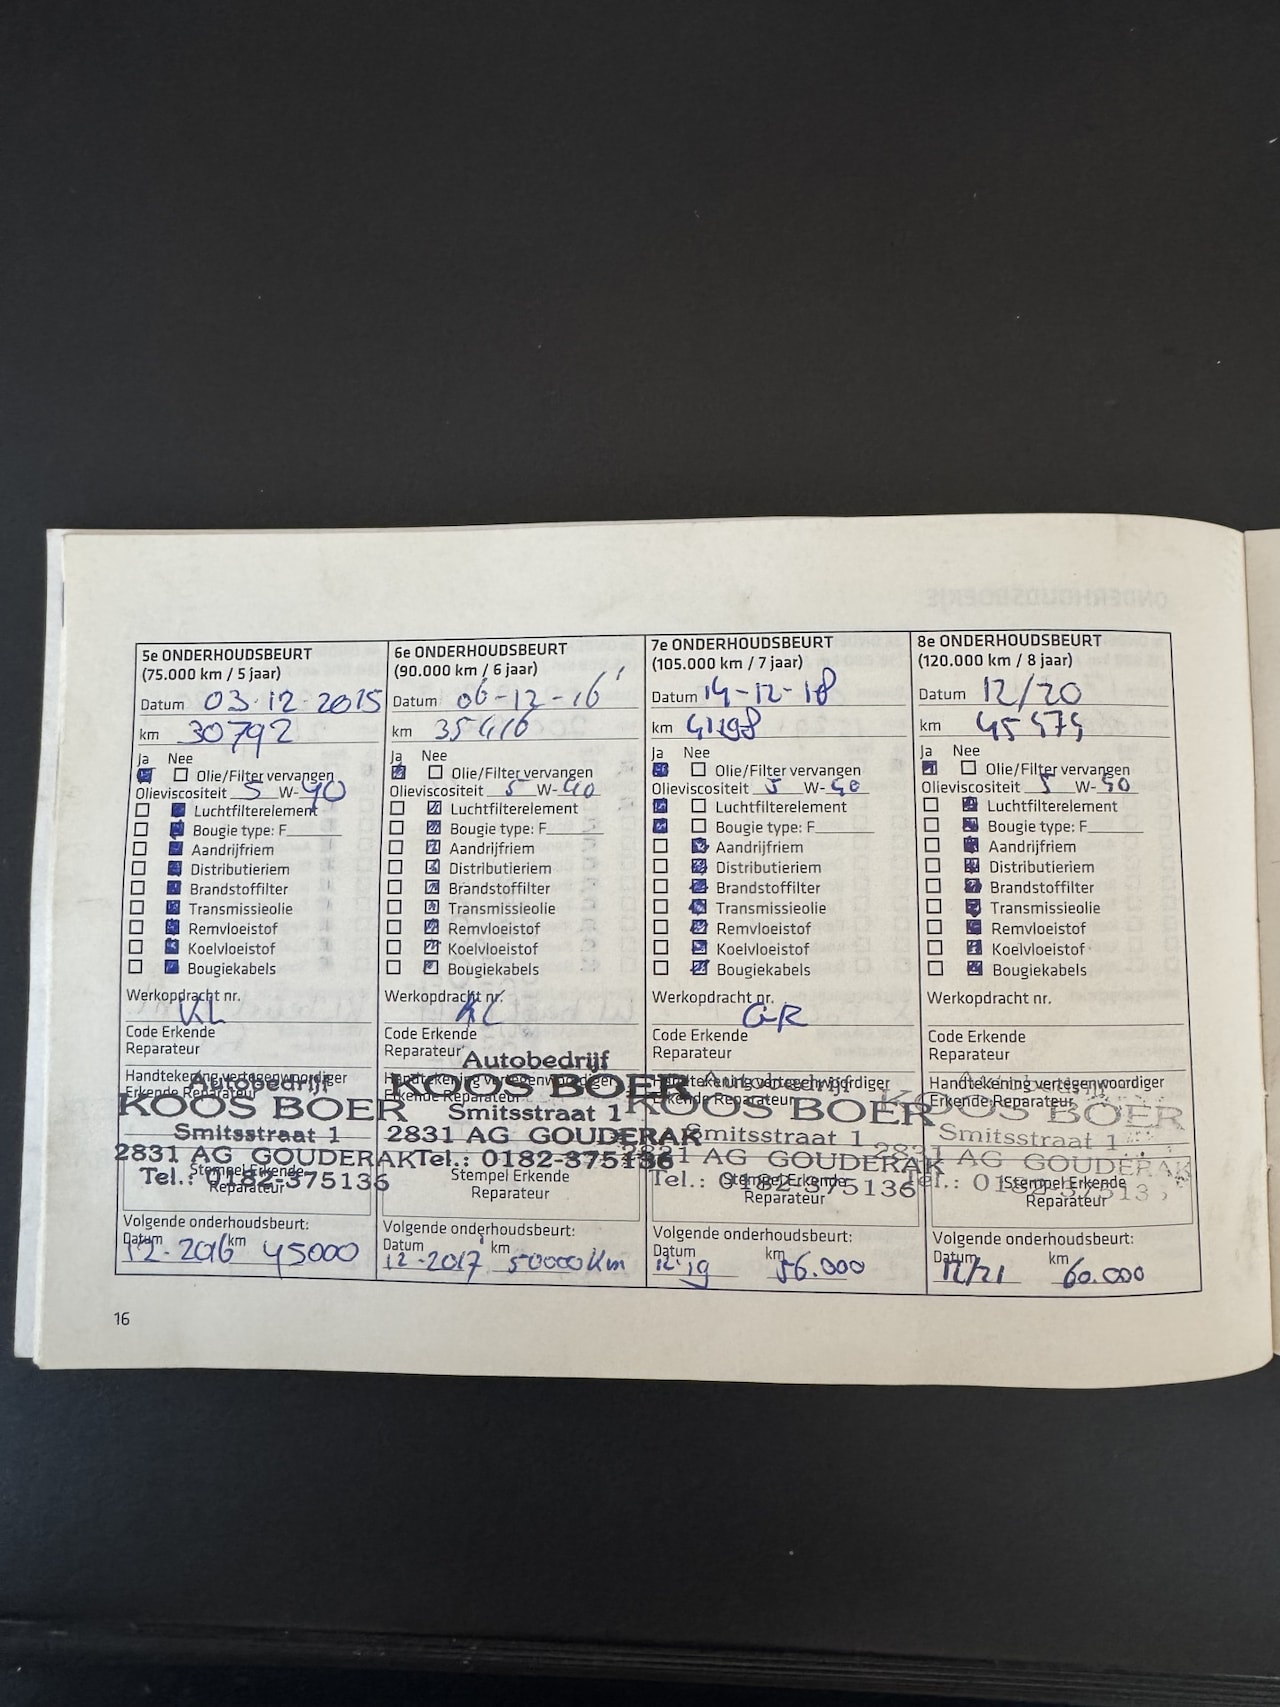 5e ONDERHOUDSBEURT
(75.000 km / 5 jaar)
Datum 03-12-2015
km 30792
Ja Nee
Olie/Filter vervangen
Olieviscositeit 5 W-40
Luchtfilterelement
Bougie type: F
Aandrijfriem
Distributieriem
Brandstoffilter
Transmissieolie
Remvloeistof
Koelvloeistof
Bougiekabels
Werkopdracht nr.
KL
Code Erkende
Reparateur
Handtekening vertegenwoordiger
Erkende Reparateur
Autobedrijf
KOOS BOER
Smitsstraat 1
2831 AG GOUDERAK
Tel.: 0182-375136
Stempel Erkende
Reparateur
Volgende onderhoudsbeurt:
Datum km
12-2016 45000
6e ONDERHOUDSBEURT
(90.000 km / 6 jaar)
Datum 06-12-16
km 35416
Ja Nee
Olie/Filter vervangen
Olieviscositeit 5 W-40
Luchtfilterelement
Bougie type: F
Aandrijfriem
Distributieriem
Brandstoffilter
Transmissieolie
Remvloeistof
Koelvloeistof
Bougiekabels
Werkopdracht nr.
KL
Code Erkende
Reparateur
Handtekening vertegenwoordiger
Erkende Reparateur
Autobedrijf
KOOS BOER
Smitsstraat 1
2831 AG GOUDERAK
Tel.: 0182-375136
Stempel Erkende
Reparateur
Volgende onderhoudsbeurt:
Datum km
12-2017 50000 km
7e ONDERHOUDSBEURT
(105.000 km / 7 jaar)
Datum 14-12-18
km 41298
Ja Nee
Olie/Filter vervangen
Olieviscositeit 5 W-40
Luchtfilterelement
Bougie type: F
Aandrijfriem
Distributieriem
Brandstoffilter
Transmissieolie
Remvloeistof
Koelvloeistof
Bougiekabels
Werkopdracht nr.
GR
Code Erkende
Reparateur
Handtekening vertegenwoordiger
Erkende Reparateur
Autobedrijf
KOOS BOER
Smitsstraat 1
2831 AG GOUDERAK
Tel.: 0182-375136
Stempel Erkende
Reparateur
Volgende onderhoudsbeurt:
Datum km
12-19 56.000
8e ONDERHOUDSBEURT
(120.000 km / 8 jaar)
Datum 12/20
km 45474
Ja Nee
Olie/Filter vervangen
Olieviscositeit 5 W-
Luchtfilterelement
Bougie type: F
Aandrijfriem
Distributieriem
Brandstoffilter
Transmissieolie
Remvloeistof
Koelvloeistof
Bougiekabels
Werkopdracht nr.
Code Erkende
Reparateur
Handtekening vertegenwoordiger
Erkende Reparateur
KOOS BOER
Smitsstraat 1
2831 AG GOUDERAK
Tel.: 0182-37513
Stempel Erkende
Reparateur
Volgende onderhoudsbeurt:
Datum km
12/21 60.000
16